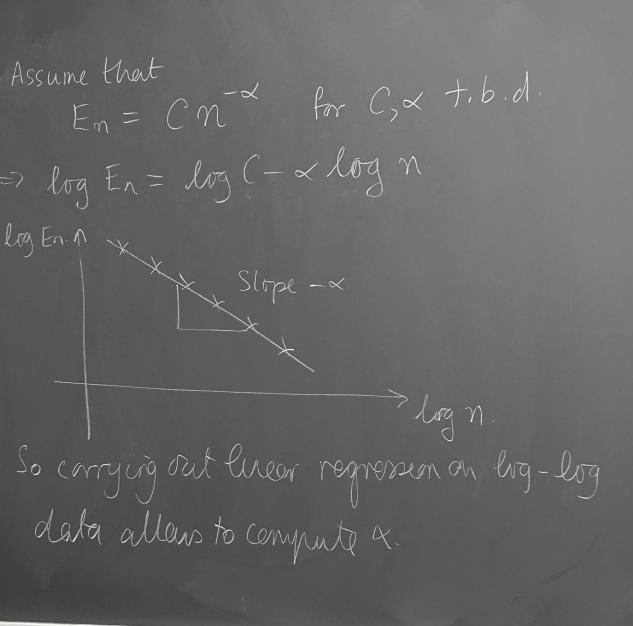 Assume that
En = C n^-α for C, α t.b.d.
=> log En = log C - α log n
log En.
Slope -α
log n.
So carrying out linear regression on log-log
data allows to compute α.